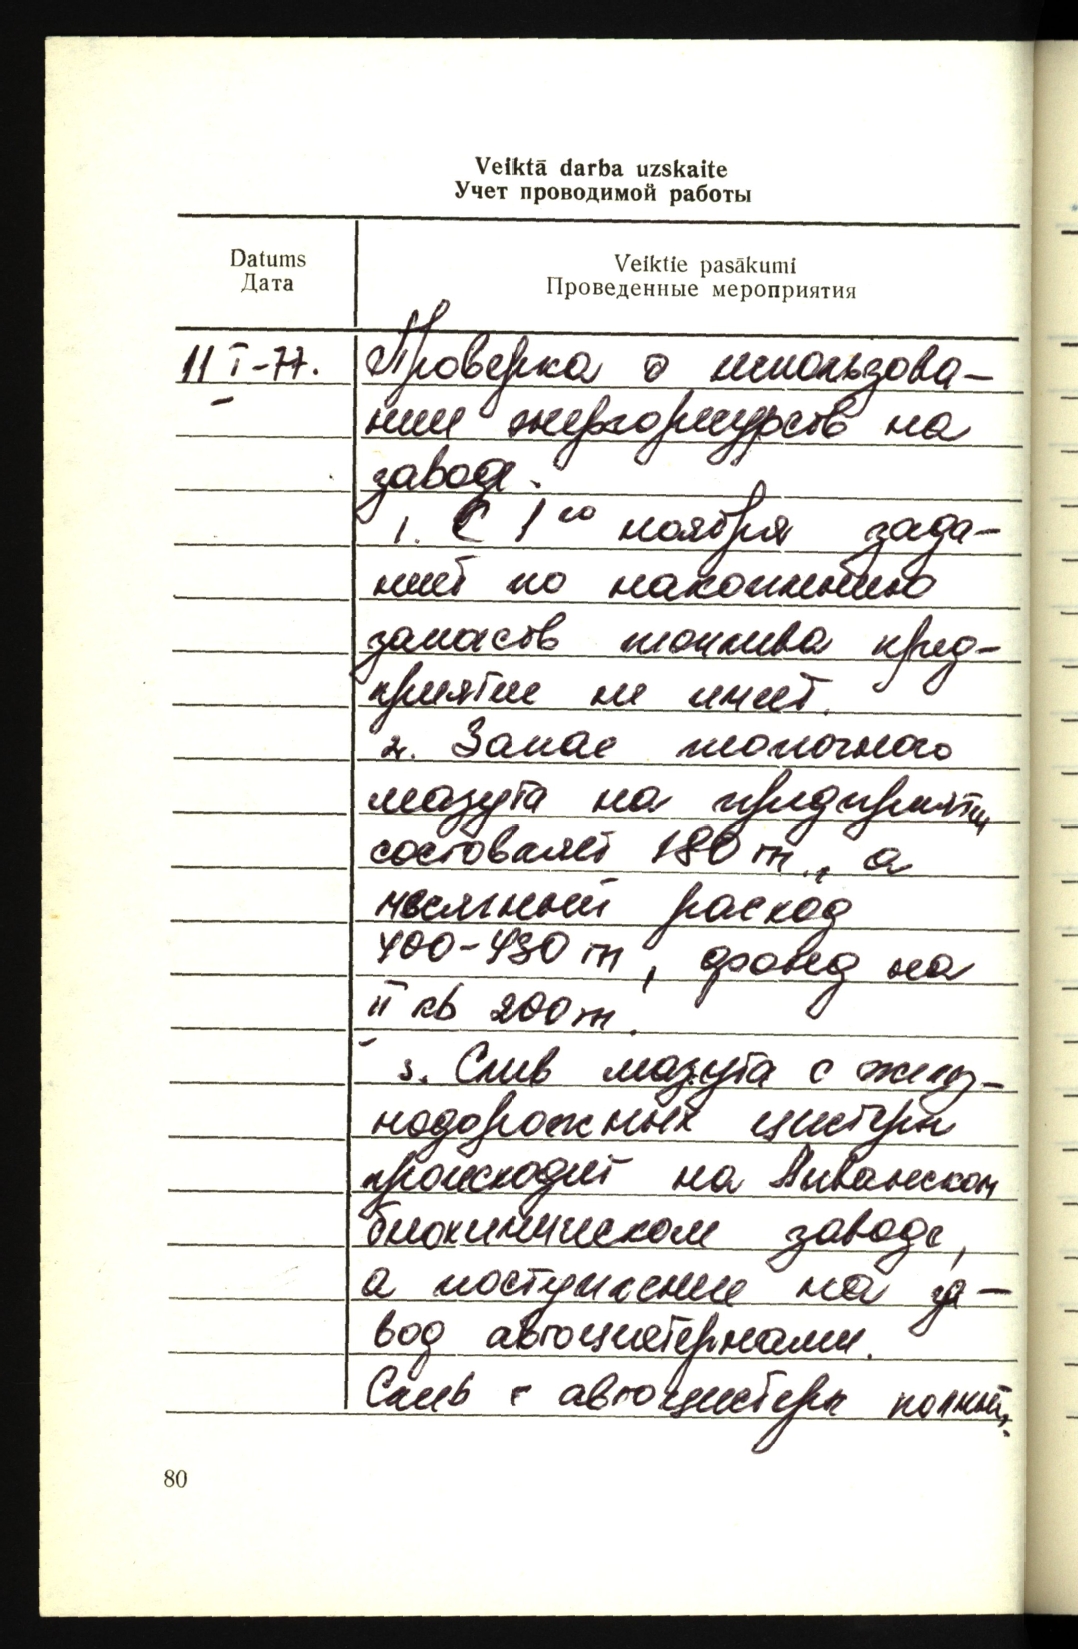 Veiktā darba uzskaite
Учет проводимой работы
Datums
Дата
Veiktie pasākumi
Проведенные мероприятия
11 I-77.
Проверка о использова-
нии энергоресурсов на
заводе.
1. С 1го ноября зада-
ний по накоплению
запасов топлива пред-
приятие не имеет.
2. Запас топочного
мазута на предприятии
составляет 180 т., а
месячный расход
400-430 т, фонд на
II кв 200 т.
3. Слив мазута с желез-
нодорожных цистерн
происходит на Ливанском
биохимическом заводе,
а поступление на за-
вод автоцистернами.
Слив с автоцистерн полный.
80